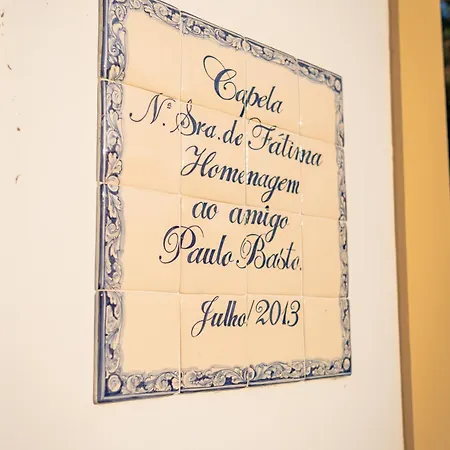 Capela
N.ª Sra. de Fátima
Homenagem
ao amigo
Paulo Basto.
Julho/2013